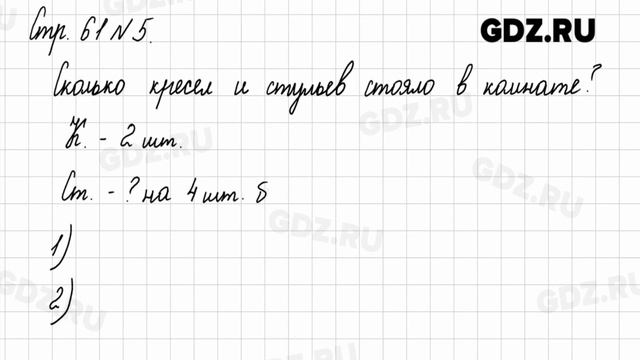 Стр. 61 N 5.
GDZ.RU
Сколько кресел и стульев стояло в комнате?
К. - 2 шт.
GDZ.RU
GDZ.RU
Ст. - ? на 4 шт. б
GDZ.RU
1)
GDZ.RU
2)
GDZ.RU
GDZ.RU